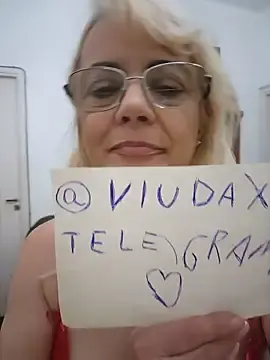 @ VIUDAX
TELEGRAM